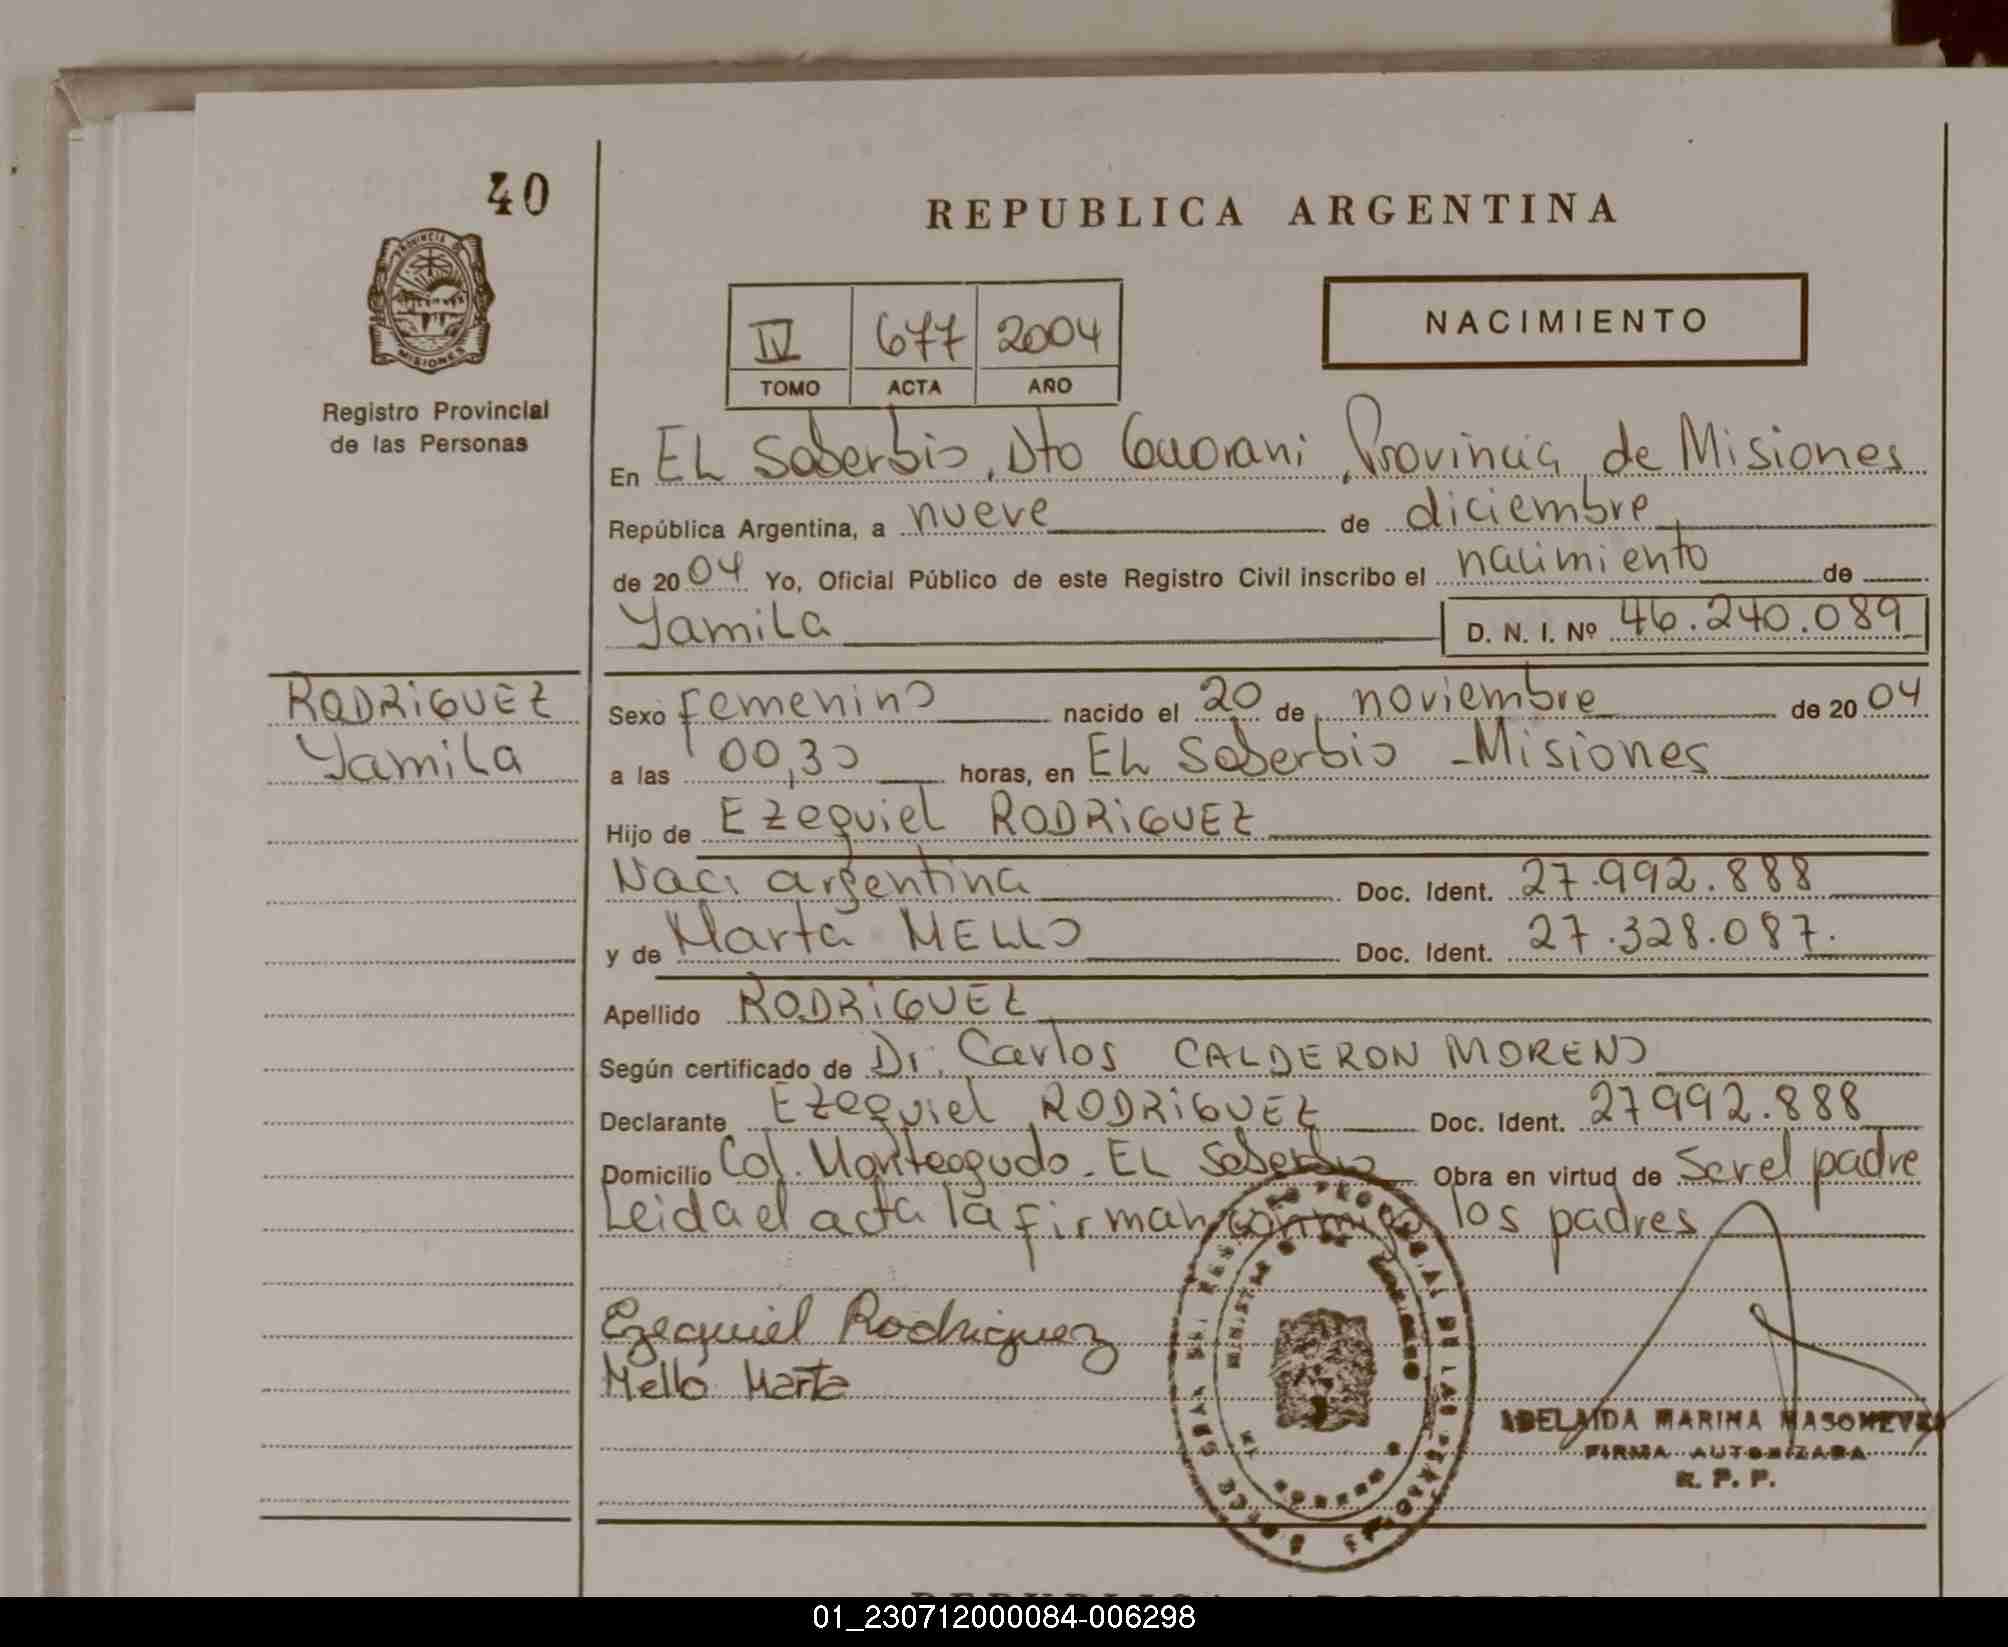 40
PROVINCIA DE
MISIONES
Registro Provincial
de las Personas
REPUBLICA ARGENTINA
IV 677 2004
TOMO ACTA AÑO
NACIMIENTO
En EL Soberbio, Dto Guarani, Provincia de Misiones
República Argentina, a nueve de diciembre
de 2004 Yo, Oficial Público de este Registro Civil inscribo el nacimiento de
Yamila D. N. I. Nº 46.240.089
RODRiGUEZ
Yamila
Sexo femenino nacido el 20 de noviembre de 2004
a las 00,30 horas, en EL Soberbio - Misiones
Hijo de Ezequiel RODRiGUEZ
Naci argentina Doc. Ident. 27.992.888
y de Marta MELLO Doc. Ident. 27.328.087.
Apellido RODRiGUEZ
Según certificado de Dr. Carlos CALDERON MORENO
Declarante Ezequiel RODRiGUEZ Doc. Ident. 27992.888
Domicilio Col. Monteagudo - EL Soberbio Obra en virtud de Ser el padre
Leida el acta la firman conmigo los padres
Ezequiel Rodriguez
Mello Marta
ADELAIDA MARINA
FIRMA AUTORIZADA
R. P. P.
REPUBLICA ARGENTINA
01_230712000084-006298